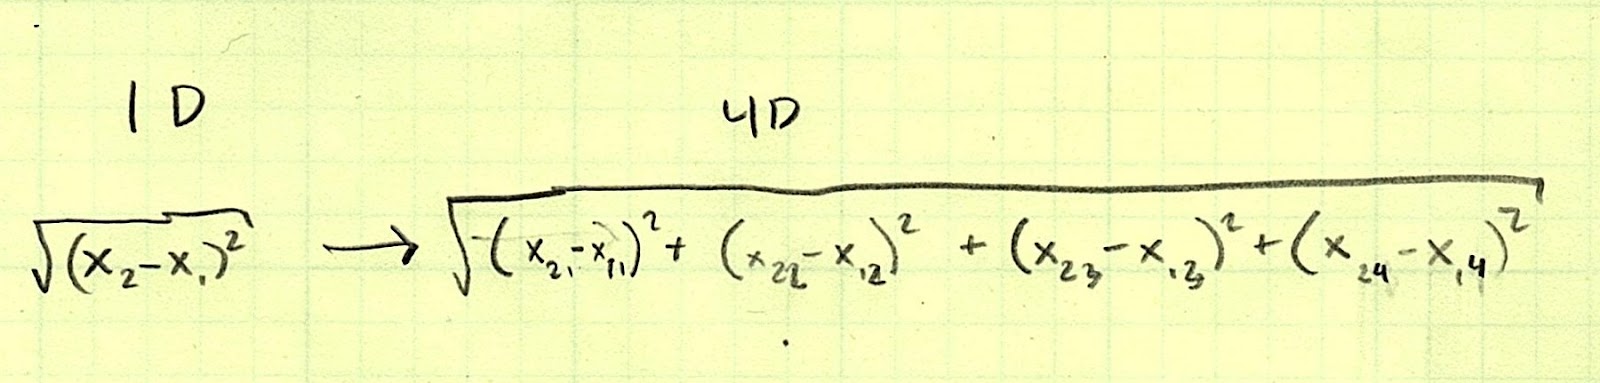 1D 4D
√(x₂-x₁)² → √(x₂₁-x₁₁)² + (x₂₂-x₁₂)² + (x₂₃-x₁₃)² + (x₂₄-x₁₄)²